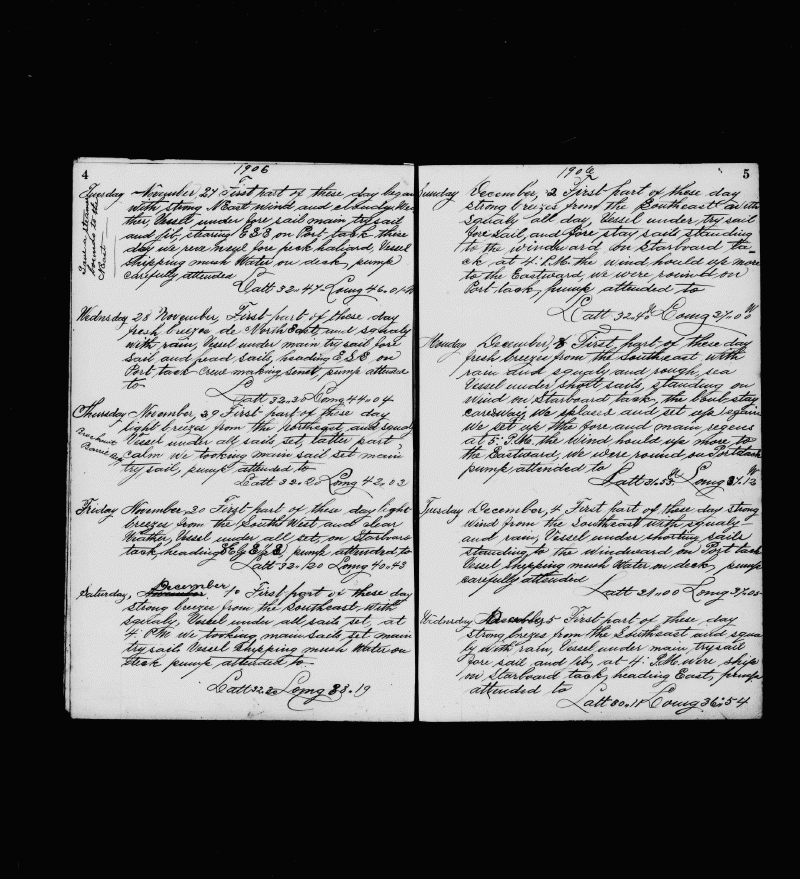 4
1906
Tuesday November, 27 First part of these day began
with strong N East wind and cloudy Wea
ther, Vessel under fore sail main try sail
and jib, stearing E S E on Port tack these
day we reve nsye fore peek haliard, Vessel
Shipping mush Water on deck, pump
carefully, attended
Saw a steam
bound to the
East
Latt 32.47 Long 46.01
Wednsday 28 November, First part of these day
fresh breezes de North East, and squaly
with rain, Vessel under main try sail fore
sail and head sails, heading E S E on
Port tack Crew marking senet, pump attended
to
Latt 32.30 Long 44.04
Thursday November, 29 First part of these day
light breezes from the Northeast, and squaly
Vessel under all sails set, latter part
calm we tooking main sail set main
try sail, pump attended to
Latt 32.20 Long 42.02
Friday November, 30 First part of these day light
breezes from the South West and clear
Weather, Vessel under all set, on Starboard
tack, heading E by S ½ S, pump attended to
Latt 32.120 Long 40.43
Saturday, December, 1o First part of these day
strong breezes from the Southeast with
squaly, Vessel under all sails set, at
4 P.M. we tooking main sails set main
try sails Vessel Shipping mush Water on
deck pump attended to
Latt 32.20 Long 38.19
5
1906
Sunday December, 2 First part of these day
strong breezes from the Southeast with
squaly all day, Vessel under, try sail
fore sail, and fore stay sails, standing
to the windward on starboard ta
ck at 4: P.M. the wind, hould up more
to the Eastward, we were round on
Port tack, pump attended to
Latt 32.40 N Long 37.00 W
Monday December, 3 First, part, of these day
fresh breezes from the Southeast with
rain and squaly and rough, sea
Vessel under short sails, standing on
wind on Starboard tack, the boul stay
caresway, we splased and set up again
we set up the fore and main regens
at 5: P.M. the Wind hould up more to
the Eastward, we were round, on Port tack
pump attended to
Latt 31.53 N Long 37.13 W
Tuesday December, 4 First part of these day strong
wind from the Southeast with squaly
and rain, Vessel under shorting sails
standing to the windward on Port tack
Vessel Shepping mush Water on deck, pump
carefully attended
Latt 31.00 Long 37.05
Wednesday December 5 First part of these day
strong brezes from the Southeast and squa
ly with rain, Vessel under main try sail
fore sail and jib, at 4: P.M. were ship
on Starboard tack, heading East, pump
attended to
Latt 30.18 Long 36.54